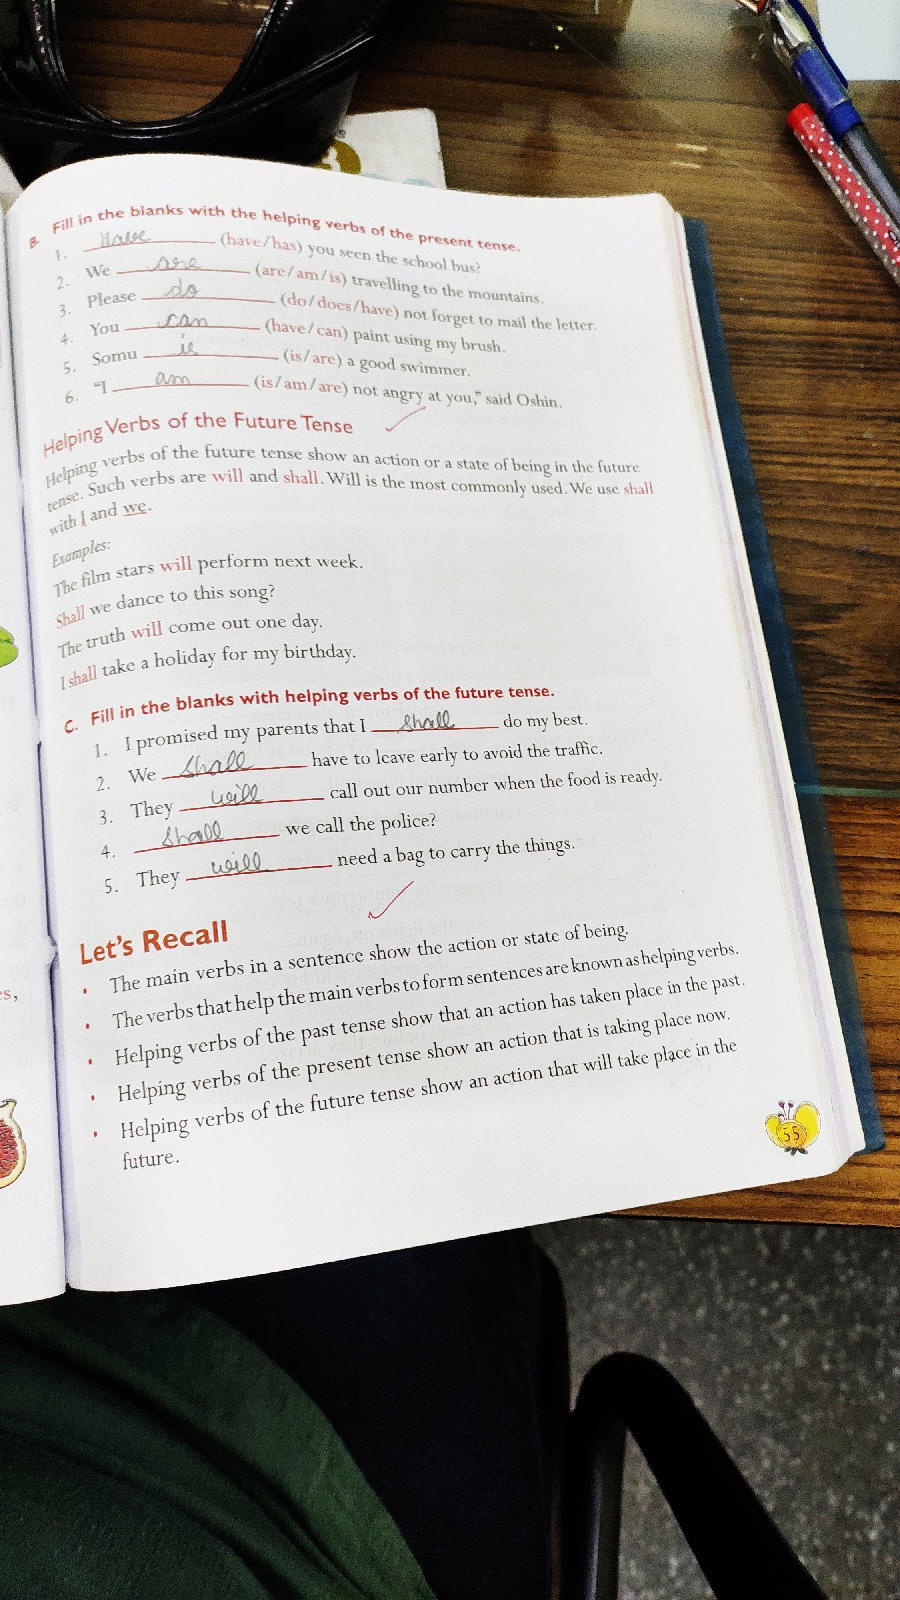 B. Fill in the blanks with the helping verbs of the present tense.
1. Have (have/has) you seen the school bus?
2. We are (are/am/is) travelling to the mountains.
3. Please do (do/does/have) not forget to mail the letter.
4. You can (have/can) paint using my brush.
5. Somu is (is/are) a good swimmer.
6. "I am (is/am/are) not angry at you," said Oshin.
Helping Verbs of the Future Tense
Helping verbs of the future tense show an action or a state of being in the future
tense. Such verbs are will and shall. Will is the most commonly used. We use shall
with I and we.
Examples:
The film stars will perform next week.
Shall we dance to this song?
The truth will come out one day.
I shall take a holiday for my birthday.
C. Fill in the blanks with helping verbs of the future tense.
1. I promised my parents that I shall do my best.
2. We shall have to leave early to avoid the traffic.
3. They will call out our number when the food is ready.
4. shall we call the police?
5. They will need a bag to carry the things.
Let's Recall
• The main verbs in a sentence show the action or state of being.
• The verbs that help the main verbs to form sentences are known as helping verbs.
• Helping verbs of the past tense show that an action has taken place in the past.
• Helping verbs of the present tense show an action that is taking place now.
• Helping verbs of the future tense show an action that will take place in the
future.
55